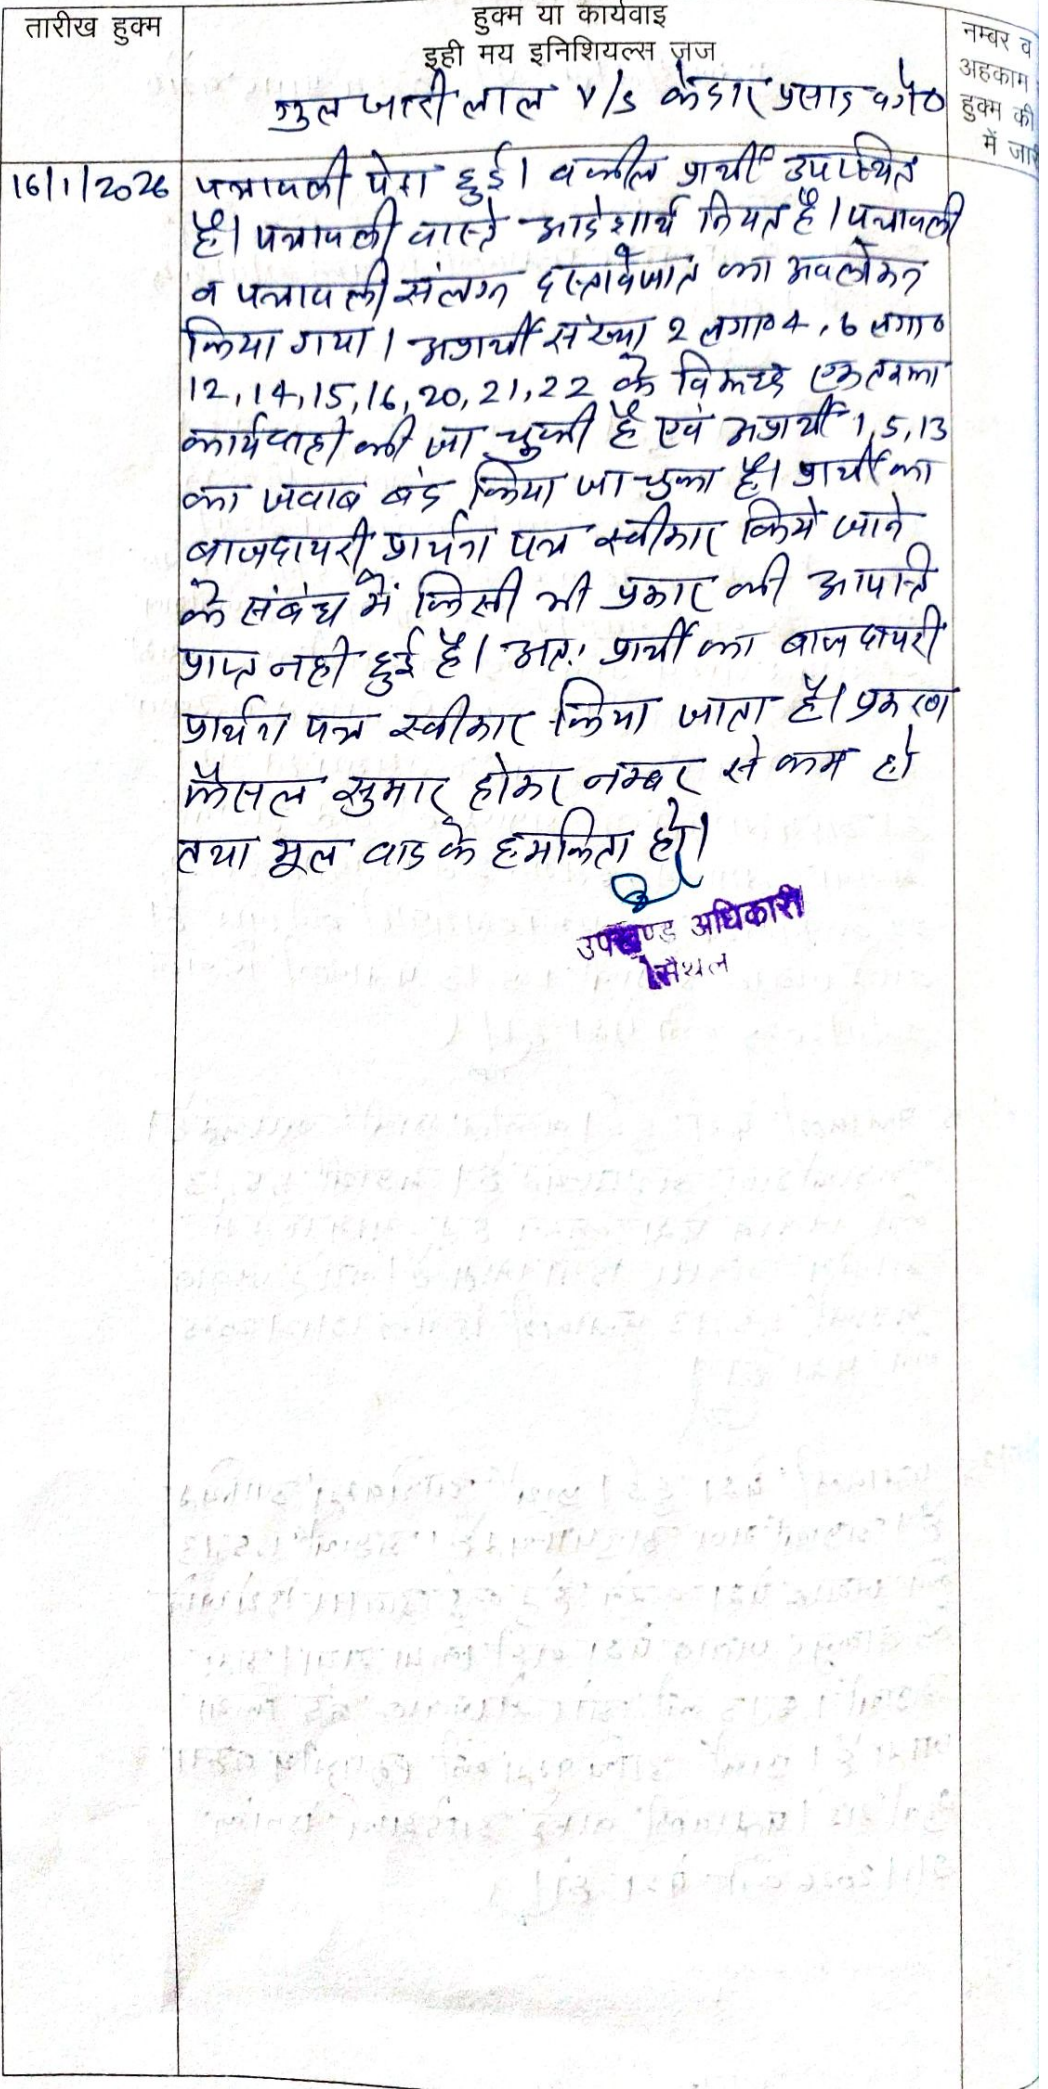 तारीख हुक्म
हुक्म या कार्यवाइ
इही मय इनिशियल्स जज
नम्बर व
अहकाम
हुक्म की
में जारी
गुलजारी लाल v/s केदार प्रसाद वगै०
16/1/2026 पत्रावली पेश हुई। वकील प्रार्थी उपस्थित
है। पत्रावली वास्ते आदेशार्थ नियत है। पत्रावली
व पत्रावली संलग्न दस्तावेजात का अवलोकन
किया गया। अप्रार्थी संख्या 2 लगा० 4, 6 लगा०
12, 14, 15, 16, 20, 21, 22 के विरूद्ध एकतरफा
कार्यवाही की जा चुकी है एवं अप्रार्थी 1, 5, 13
का जवाब बंद किया जा चुका है। प्रार्थी का
बाजदायरी प्रार्थना पत्र स्वीकार किये जाने
के संबंध में किसी भी प्रकार की आपत्ति
प्राप्त नही हुई है। अतः प्रार्थी का बाजदायरी
प्रार्थना पत्र स्वीकार किया जाता है। प्रकरण
फैसल सुमार होकर नम्बर से कम हो
तथा मूल वाद के हमकिता हो।
उपखण्ड अधिकारी